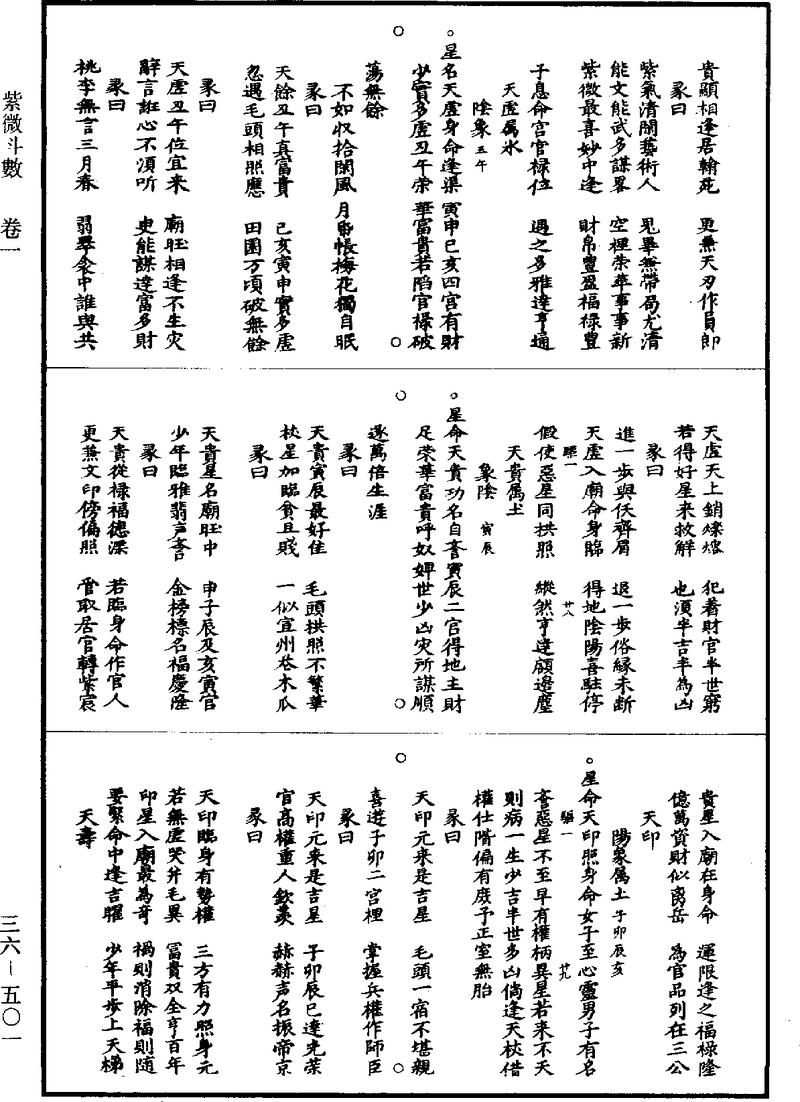 紫微斗數　卷一
貴顯相逢居翰苑　更無天刃作員郎
彖曰
紫氣清閑藝術人　鬼畢無帶局尤清
能文能武多謀畧　空裡榮華事事新
紫微最喜妙中逢　財帛豐盈福祿豐
子息命宮官祿位　遇之多雅達亨通
天虛属水
陰象 五午
○星名天虛身命逢渠寅申巳亥四宮有財
少實多虛丑午榮華富貴若陷官祿破
蕩無餘
不如收拾閑風月 帳梅花獨自眠
彖曰
天餘丑午真富貴　己亥寅申實多虛
忽遇毛頭相照應　田園万頃破無餘
彖曰
天虛丑午位宜來　廟旺相逢不生灾
辭言誑心不須听　吏能謀達富多財
彖曰
桃李無言三月春　翡翠衾中誰與共
天虛天上銷爍熔　犯着財官半世窮
若得好星來救解　也須半吉半為凶
彖曰
進一步與仸齊眉　退一步俗緣未断
天虛入廟命身臨　得地陰陽喜駐停
假使惡星同拱照　縱然亨達顧邊塵
天貴属土
象陰 寅辰
○星命天貴功名自奮寅辰二宮得地主財
足榮華富貴呼奴婢世少凶灾所謀順
遂萬倍生涯
彖曰
天貴寅辰最好佳　毛頭拱照不繁華
杖星加臨貪且賤　一似宜州巷木瓜
彖曰
天貴星名廟旺中　申子辰及亥寅宮
少年臨雅翡声奮　金榜標名福慶隆
彖曰
天貴從祿福德深　若臨身命作官人
更無文印傍偏照　管取居官轉紫宸
貴星入廟在身命　運限逢之福祿隆
億萬資財似喬岳　為官品列在三公
天印
陽象属土 子卯辰亥
○星命天印照身命女子至心靈男子有名
奮惡星不至早有權柄異星若來不天
則病一生少吉半世多凶倘逢天杖借
權仕階偏有庶予正室無胎
彖曰
天印元来是吉星　毛頭一宿不堪親
喜逰子卯二宮裡　掌握兵權作師臣
彖曰
天印元来是吉星　子卯辰巳達光荣
官高權重人欽羡　赫赫声名振帝京
彖曰
天印臨身有勢權　三方有力照身元
若無虛哭并毛異　富貴双全亨百年
印星入廟最為奇　禍則消除福則随
要緊命中逢吉曜　少年平步上天梯
天壽
三六—五〇一